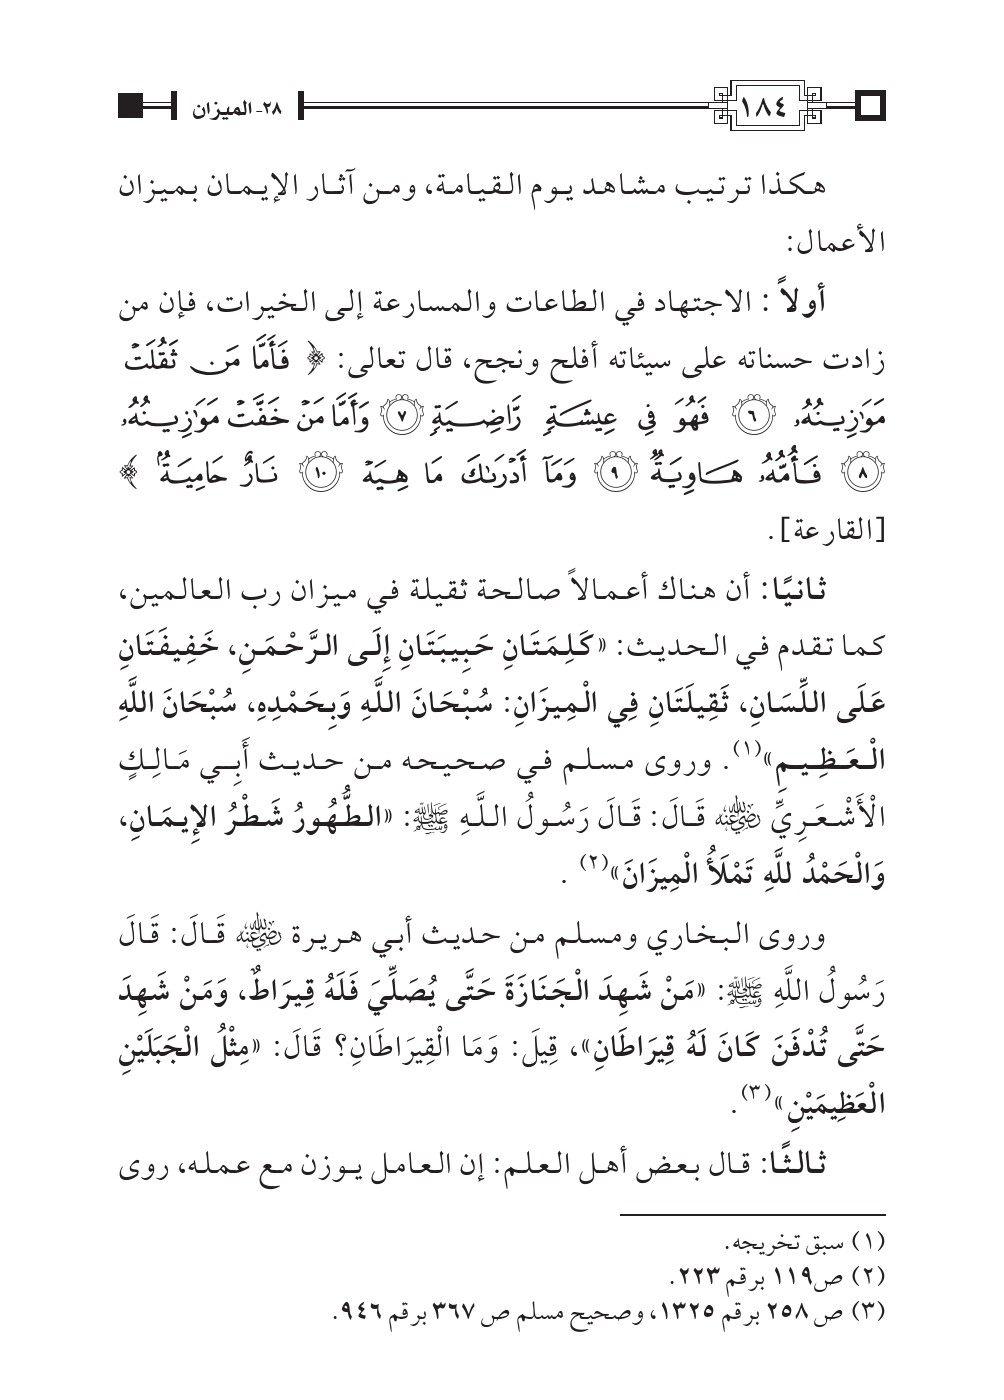 ١٨٤
٢٨- الميزان
هكذا ترتيب مشاهد يوم القيامة، ومن آثار الإيمان بميزان
الأعمال:
أولاً : الاجتهاد في الطاعات والمسارعة إلى الخيرات، فإن من
زادت حسناته على سيئاته أفلح ونجح، قال تعالى: ﴿ فَأَمَّا مَن ثَقُلَتْ
مَوَٰزِينُهُۥ ٦ فَهُوَ فِي عِيشَةٍ رَّاضِيَةٍ ٧ وَأَمَّا مَنْ خَفَّتْ مَوَٰزِينُهُۥ
٨ فَأُمُّهُۥ هَاوِيَةٌ ٩ وَمَآ أَدْرَىٰكَ مَا هِيَهْ ١٠ نَارٌ حَامِيَةٌۢ ﴾
[القارعة].
ثانيًا: أن هناك أعمالاً صالحة ثقيلة في ميزان رب العالمين،
كما تقدم في الحديث: «كَلِمَتَانِ حَبِيبَتَانِ إِلَى الرَّحْمَنِ، خَفِيفَتَانِ
عَلَى اللِّسَانِ، ثَقِيلَتَانِ فِي الْمِيزَانِ: سُبْحَانَ اللَّهِ وَبِحَمْدِهِ، سُبْحَانَ اللَّهِ
الْعَظِيمِ»(١). وروى مسلم في صحيحه من حديث أَبِي مَالِكٍ
الْأَشْعَرِيِّ رضي الله عنه قَالَ: قَالَ رَسُولُ اللَّهِ ﷺ: «الطُّهُورُ شَطْرُ الإِيمَانِ،
وَالْحَمْدُ للَّهِ تَمْلَأُ الْمِيزَانَ»(٢) .
وروى البخاري ومسلم من حديث أبي هريرة رضي الله عنه قَالَ: قَالَ
رَسُولُ اللَّهِ ﷺ: «مَنْ شَهِدَ الْجَنَازَةَ حَتَّى يُصَلِّيَ فَلَهُ قِيرَاطٌ، وَمَنْ شَهِدَ
حَتَّى تُدْفَنَ كَانَ لَهُ قِيرَاطَانِ»، قِيلَ: وَمَا الْقِيرَاطَانِ؟ قَالَ: «مِثْلُ الْجَبَلَيْنِ
الْعَظِيمَيْنِ»(٣).
ثالثًا: قال بعض أهل العلم: إن العامل يوزن مع عمله، روى
(١) سبق تخريجه.
(٢) ص١١٩ برقم ٢٢٣.
(٣) ص ٢٥٨ برقم ١٣٢٥، وصحيح مسلم ص ٣٦٧ برقم ٩٤٦.